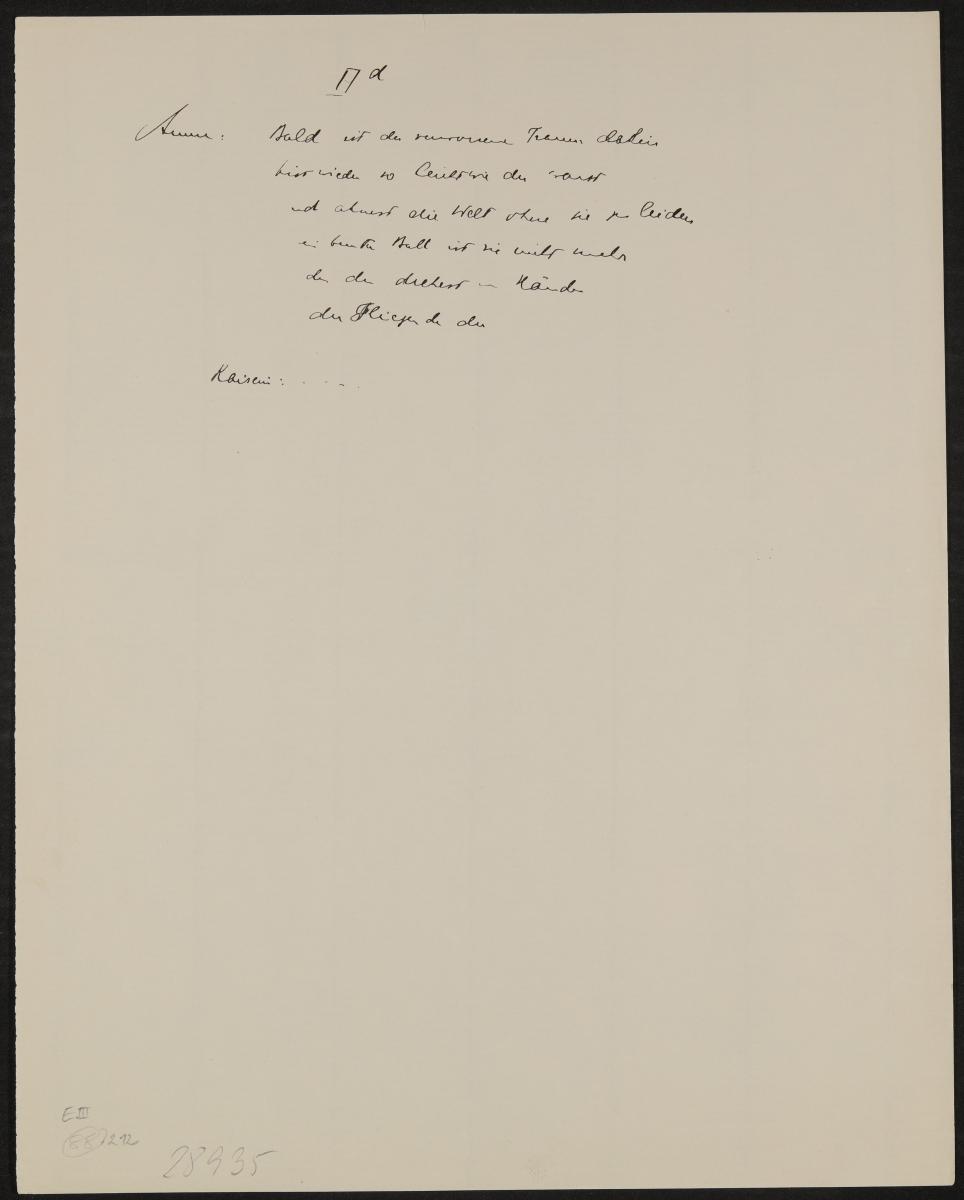 II d
Amme: Bald ist der verworrene Traum dahin
bist wieder so leicht wie du warst
und atmest die Welt ohne sie zu leiden
ein bunter Ball ist sie nicht mehr
den du drehest in Händen
du Fliegende du
Kaiserin: . . . .
E III
(88) 212
28935